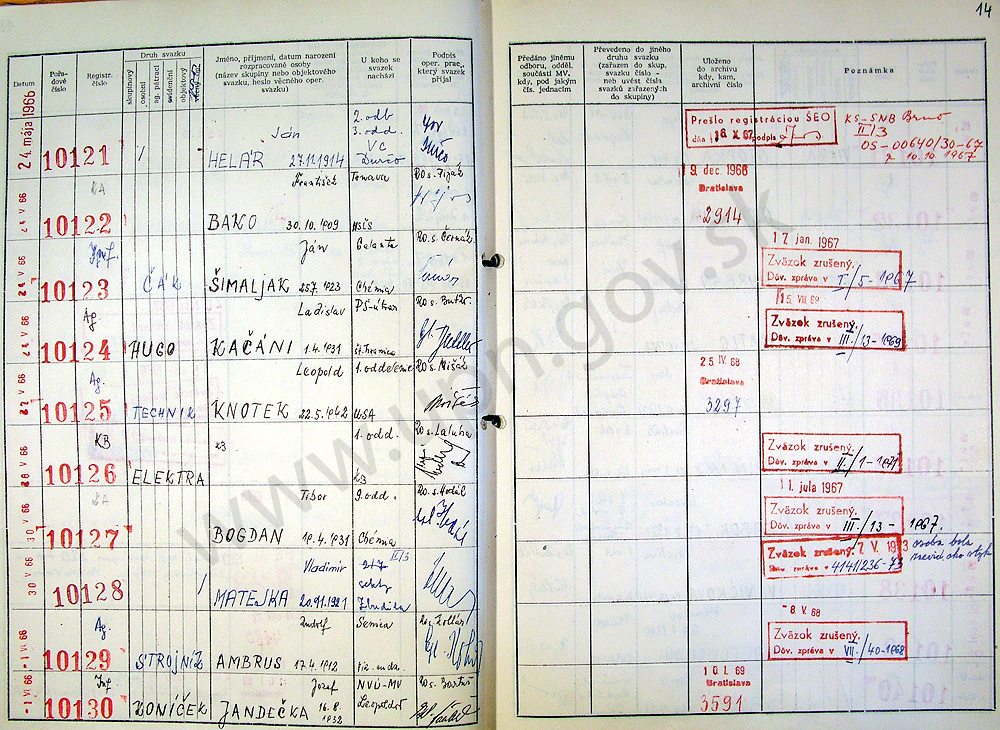 14
Datum
Pořadové číslo
Registr. číslo
Druh svazku
skupinový
osobní
ag. pátrací
evidenční
objektový
Jméno, příjmení, datum narození rozpracované osoby (název skupiny nebo objektového svazku, heslo věcného oper. svazku)
U koho se svazek nachází
Podpis oper. prac., který svazek přijal
Předáno jinému odboru, odděl. součásti MV, kdy, pod jakým čís. jednacím
Převedeno do jiného druhu svazku (zařazen do skup. svazku číslo - neb uvést čísla svazků zařazených do skupiny)
Uloženo do archivu kdy, kam, archivní číslo
Poznámka
24. mája 1966
10121
/
Ján
HELAŘ 27.12.1914
2. odb
3. odd.
VC
Ďurčo
Prešlo registráciou ŠEO
dňa 16 X. 67 podpis
KS-SNB Brno
II/3
OS-00640/30-67
z 10.10.1967
10122
František
BAKO 30.10.1909
Trnava
9 dec. 1966
Bratislava
2914
24 V 66
10123
ČÁK
Ján
ŠIMALJAK 25.7.1923
Galanta
Chémia
Ro s. Černák
17 jan. 1967
Zväzok zrušený.
Dôv. zpráva v I./5-1967
24 V 66
10124
Ag.
HUGO
Ladislav
KAČÁNI 1.4.1931
15. VII 69
Zväzok zrušený.
Dôv. zpráva v III./13-1969
10125
Ag.
TECHNIK
Leopold
KNOTEK 22.5.1942
1. oddelenie
USA
Ro s. Mišák
25 IV. 68
Bratislava
3297
26 V 66
10126
KB
ELEKTRA
1. odd.
Ro s. Laluha
Zväzok zrušený.
Dôv. zpráva v II./1-1971
30 V 66
10127
Tibor
BOGDAN 19.4.1931
9. odd.
Chémia
11. júla 1967
Zväzok zrušený.
Dôv. zpráva v III./13-1967.
30 V 66
10128
/
Vladimír
MATEJKA 20.11.1921
II/3
Zväzok zrušený. 7. V. 1973
Dôv. zpráva v 4141/236-73
osoba bola
-1 VI 66
10129
Ag.
STROJNÍK
Rudolf
AMBRUS 17.4.1912
Senica
-8. V. 68
Zväzok zrušený.
Dôv. zpráva v VII./40-1968
-1 VI 66
10130
Inf.
KONÍČEK
Jozef
JANDEČKA 16.8.1932
NVÚ-MV
Leopoldov
10. I. 69
Bratislava
3591
www.upn.gov.sk